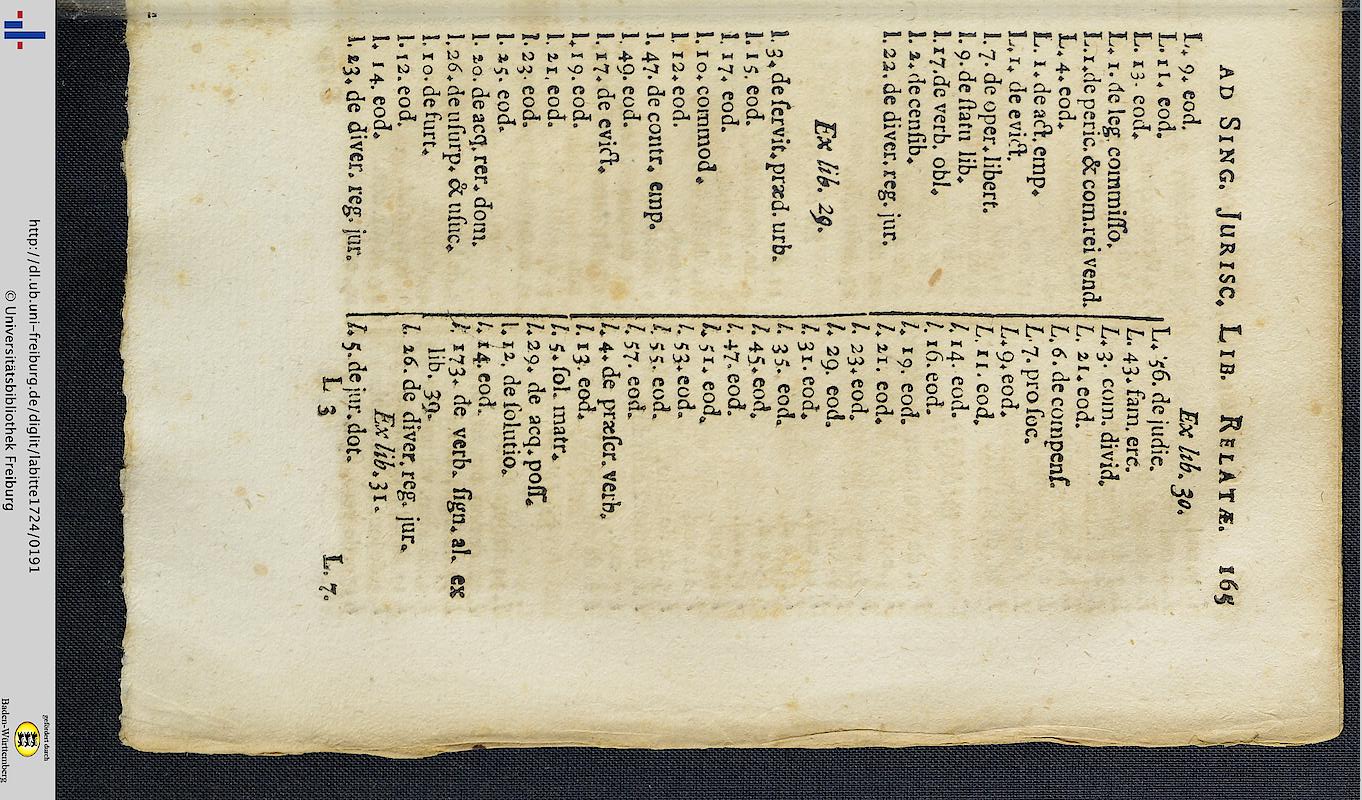 AD SING. JURISC. LIB. RELATÆ. 165
L. 9. eod.
L. 11. eod.
L. 13. eod.
L. 1. de leg. commiſſo.
L. 1. de peric. & com. rei vend.
L. 4. eod.
L. 1. de act. emp.
L. 1. de evict.
l. 7. de oper. libert.
l. 9. de ſtatu lib.
l. 17. de verb. obl.
l. 2. de cenſib.
l. 22. de diver. reg. jur.
Ex lib. 29.
l. 3. de ſervit. præd. urb.
l. 15. eod.
l. 17. eod.
l. 10. commod.
l. 12. eod.
l. 47. de contr. emp.
l. 49. eod.
l. 17. de evict.
l. 19. eod.
l. 21. eod.
l. 23. eod.
l. 25. eod.
l. 20. de acq. rer. dom.
l. 26. de uſurp. & uſuc.
l. 10. de furt.
l. 12. eod.
l. 14. eod.
l. 23. de diver. reg. jur.
Ex lib. 30.
L. 56. de judic.
L. 43. fam. erc.
L. 3. com. divid.
L. 21. eod.
L. 6. de compenſ.
L. 7. pro ſoc.
L. 9. eod.
L. 11. eod.
l. 14. eod.
l. 16. eod.
l. 19. eod.
l. 21. eod.
l. 23. eod.
l. 29. eod.
l. 31. eod.
l. 35. eod.
l. 45. eod.
l. 47. eod.
l. 51. eod.
l. 53. eod.
l. 55. eod.
l. 57. eod.
l. 4. de præſcr. verb.
l. 13. eod.
l. 5. ſol. matr.
l. 29. de acq. poſſ.
l. 12. de ſolutio.
l. 14. eod.
l. 173. de verb. ſign. al. ex
lib. 39.
l. 26. de diver. reg. jur.
Ex lib. 31.
l. 5. de jur. dot.
L 3 L. 7.
http://dl.ub.uni-freiburg.de/diglit/labitte1724/0191
© Universitätsbibliothek Freiburg
gefördert durch
Baden-Württemberg